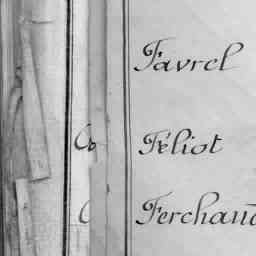 Favrel
Co Féliot
Ferchaud